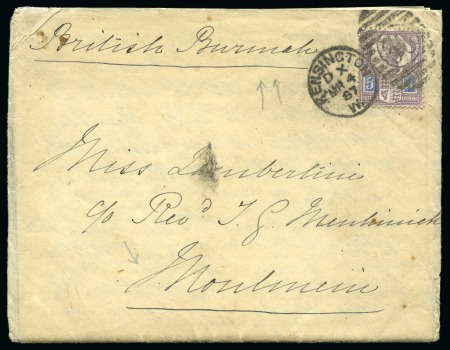 British Burmah
KENSINGTON
D X
MY 4
87
W
5
Miss Lambertine
c/o Revd T. G. Menhinick
Moulmein